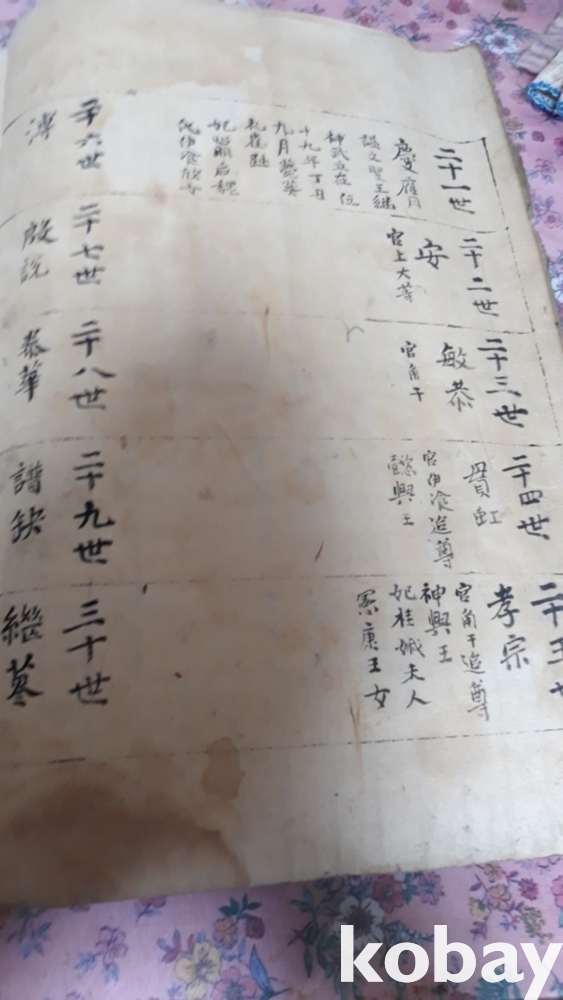 二十一世
慶膺
諡文聖王継
神武立在位
十九年丁丑
九月薨葬
孔雀趾
妃昭明后魏
二十二世
安
官上大等
二十三世
敏恭
官角干
二十四世
貫虹
官伊飡追尊
懿興王
孝宗
官角干追尊
神興王
妃桂娥夫人
康王女
二十六世
溥
二十七世
殷說
二十八世
泰華
二十九世
譜缺
三十世
継蔘
kobay